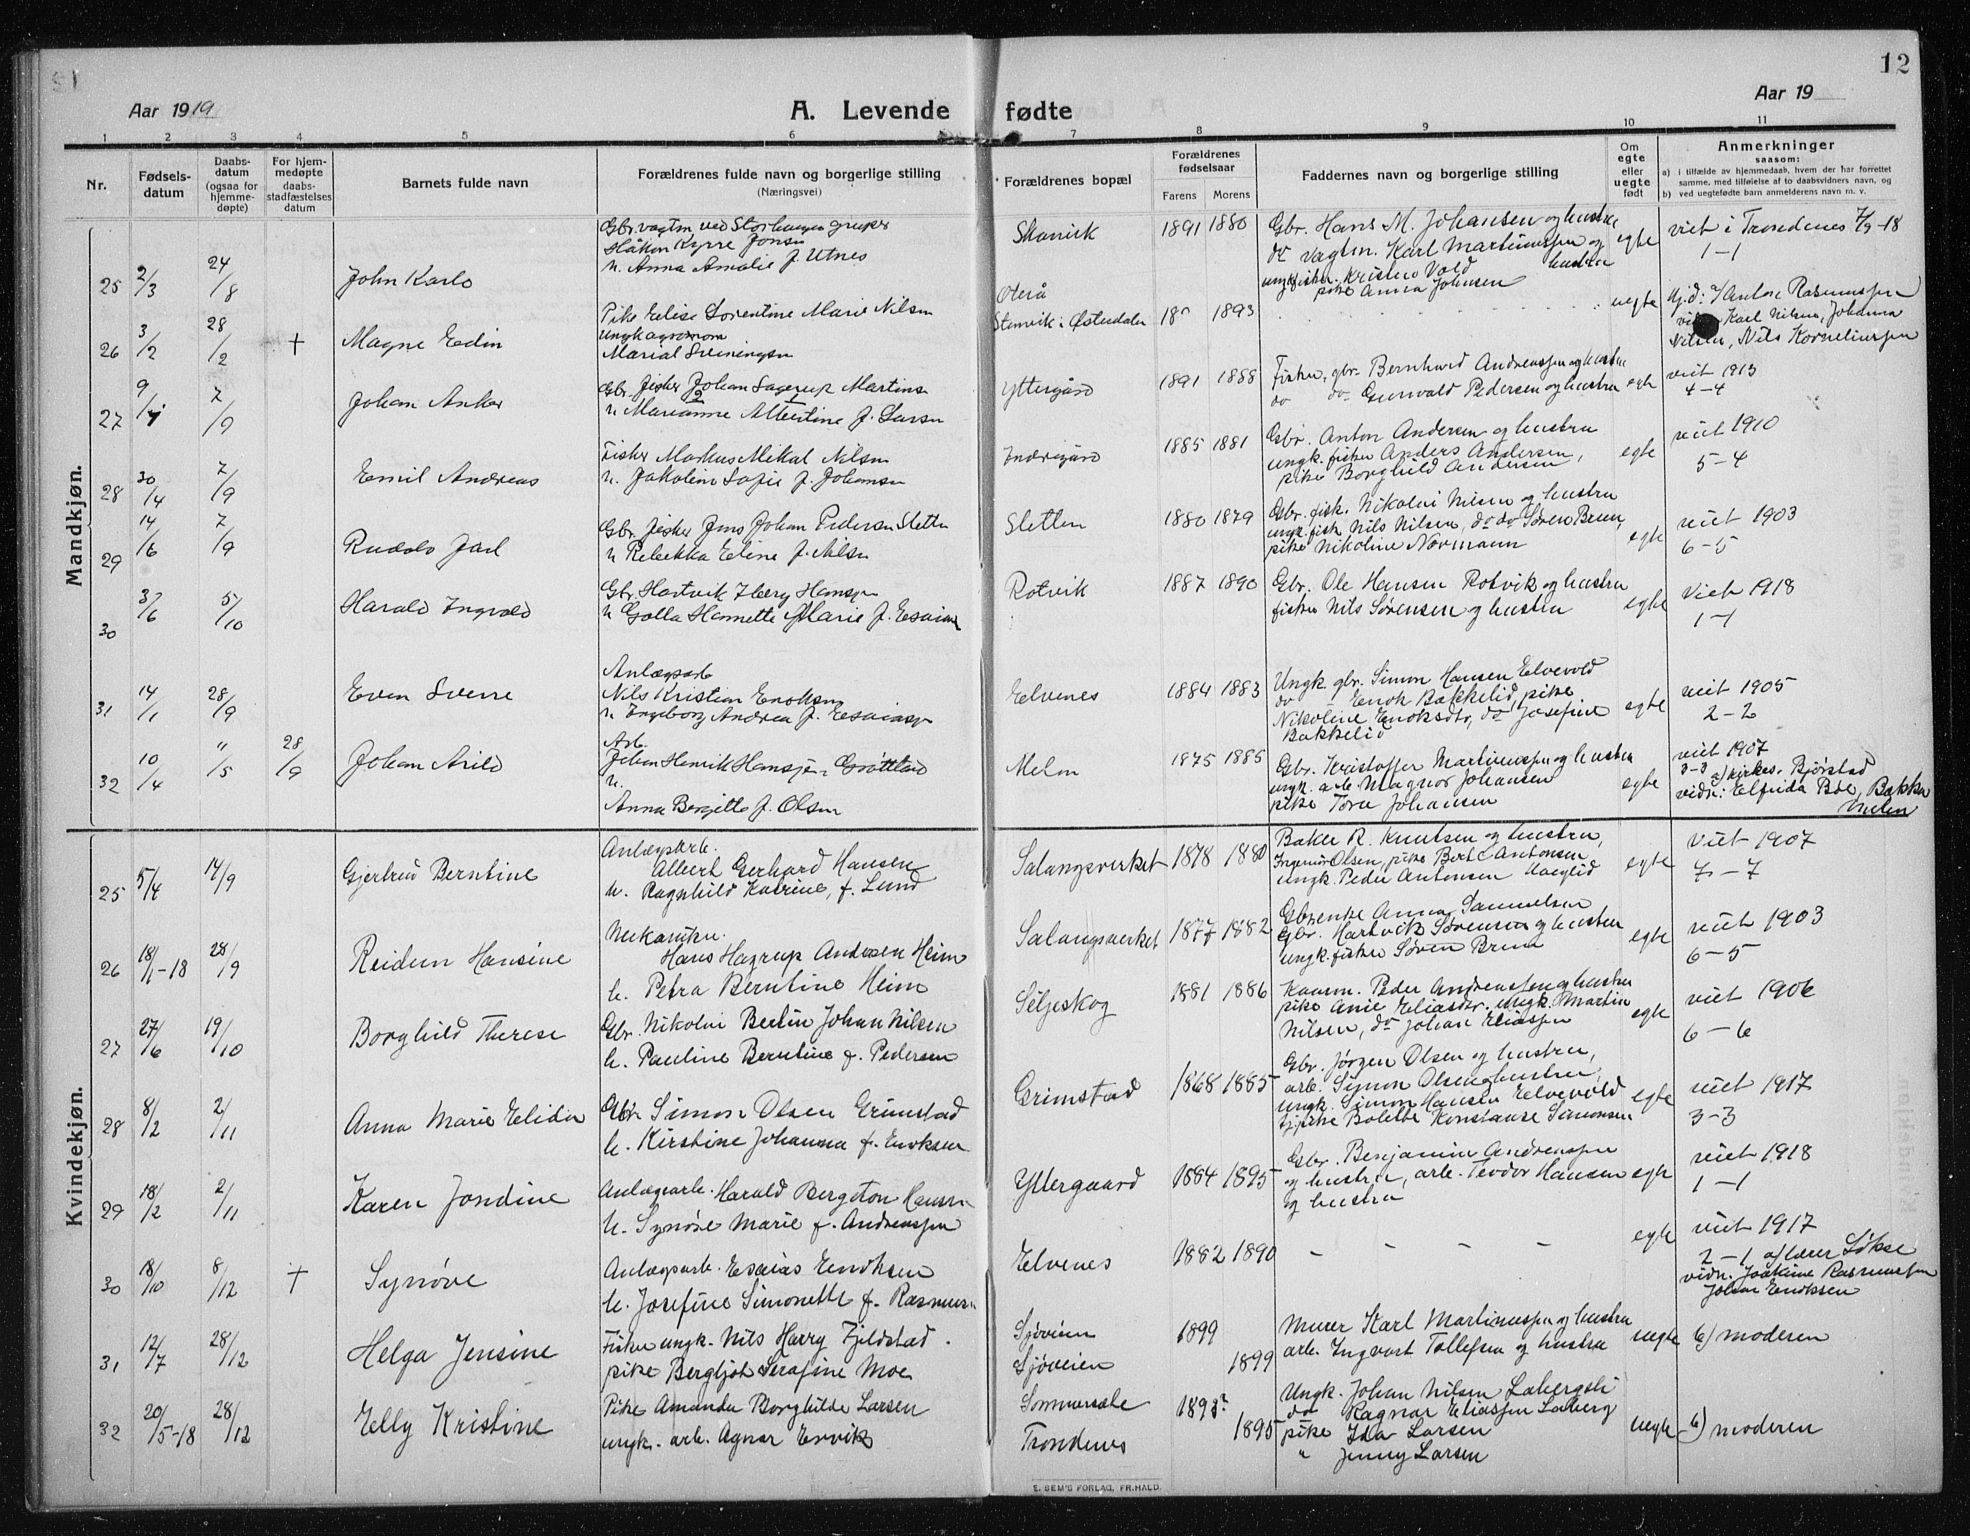 12
Aar 1919
A. Levende fødte
Aar 19
1 2 3 4 5 6 7 8 9 10 11
Nr.
Fødsels-
datum
Daabs-
datum
(ogsaa for
hjemme-
døpte)
For hjem-
medøpte
daabs-
stadfæstelses
datum
Barnets fulde navn
Forældrenes fulde navn og borgerlige stilling
(Næringsvei)
Forældrenes bopæl
Forældrenes
fødselsaar
Farens Morens
Faddernes navn og borgerlige stilling
Om
egte
eller
uegte
født
Anmerkninger
saasom:
a) i tilfælde av hjemmedaab, hvem der har forrettet
samme, med tilføielse af to daabsvidners navn, og
b) ved uegtefødte barn anmelderens navn m. v.
Mandkjøn.
25 2/3 24/8 John Karlo
Gbr. vagtm. ved Storhaugen gruber
Håkon Kyrre Jonsen
h. Anna Amalie f. Utnes
Skavik 1891 1880
Gbr. Hans M. Johansen og hustru
do vagtm. Karl Martinussen og hustru
ungk. fisker. Kristen Vold
pike Anna Johnsen
egte
viet i Trondenes 7/9-18
1-1
26 3/2 28/2 + Magne Edin
Pike Elise Lorentine Marie Nilsen
Ungk agronom
Marial Sveiningsen
Oterå
Stenvik i Østerdalen 18 1893
uegte
Hj.d: v/ Anton Rasmussen
Karl Nilsen, Johanna
Nilsen, Nils Korneliussen
27 9/7 7/9 Johan Anker
Gbr. fisker Johan Lagerup Martins
2 1
h. Marianne Albertine f. Larsen
Yttergård 1891 1888
Fisker, gbr. Bernhard Andreassen og hustru
do do Gunvald Pedersen og hustru
egte
viet 1913
4-4
28 30/4 7/9 Emil Andreas
Fisker Markus Mikal Nilsen
h. Jakoline Sofie f. Johansen
Indregård 1885 1881
Gbr. Anton Andersen og hustru
ungk. fisker Anders Andersen,
pike Borghild Andersen
egte
viet 1910
5-4
29 14/6 7/9 Rudolv Jarl
Gbr. fisker Jens Johan Pedersen Sletten
h. Rebekka Eline f. Nilsen
Sletten 1880 1879
Gbr. fisk. Nikolai Nilsen og hustru
ungk. fisk Nils Nilsen, do do Søren Brun,
pike Nikoline Normann
egte
viet 1903
6-5
30 3/6 5/10 Harald Ingvald
Gbr. Hartvik Iberg Hansen
h. Golla Hannette Marie f. Esaiasen
Rotvik 1887 1890
Gbr. Ole Hansen Rotvik og hustru
fisker Nils Sørensen og hustru
egte
Viet 1918
1-1
31 14/1 28/9 Even Sverre
Anlægsarb.
Nils Kristian Enoksen
h. Ingeborg Andrea f. Esaiassen
Elvenes 1884 1883
Ungk. gbr. Simon Hansen Elvevold
do Enok Bakkelid, pike
Nikoline Enoksdtr, do Josefine
Bakkelid
egte
viet 1905
2-2
32 10/4 "/5 28/9 Johan Arild
Arb.
Johan Henrik Hansen Grøttland
h.
Anna Bergitte f. Olsen
Melen 1875 1885
Gbr. Kristoffer Martinussen og hustru
ungk. arb. Magnor Johansen
pike Tora Johansen
egte
viet 1907
3-3 a) kirkes. Bjørstad
vidn.: Elfrida Bøe, Bakken
Melen
Kvindekjøn.
25 5/4 14/9 Gjertrud Berntine
Anlægsarb.
Albert Gerhard Hansen
h. Ragnhild Katrine, f. Lund
Salangsverket 1878 1880
Baker R. Knutsen og hustru,
Ingeniør Olsen, pike Berte Antonsen
ungk. Peder Antonsen
egte
viet 1907
7-7
26 18/1-18 28/9 Reidun Hansine
Mekaniker.
Hans Hagrup Andersen Heim
h. Petra Berntine Heim
Salangsverket 1877 1882
Gbr.enke Anna Samuelsen
Gbr. Hartvik Sørensen og hustru
ungk. fisker Søren Brun
egte
viet 1903
6-5
27 27/6 19/10 Borghild Therese
Gbr. Nikolai Bertin Johan Nilsen
h. Pauline Berntine f. Pedersen
Seljeskog 1881 1886
Kaarm. Peder Andreassen og hustru
pike Anie Eliasdtr. ungk. Martin
Nilsen, do Johan Eliassen
egte
viet 1906
6-6
28 8/2 2/11 Anna Marie Elida
Gbr. Simon Olsen Grimstad
h. Kirstine Johanna f. Enoksen
Grimstad 1868 1885
Gbr. Jørgen Olsen og hustru,
arb. Simon Olsen og hustru,
ungk. Simon Hansen Elvevold
pike Bolette Konstanse Simonsen
egte
viet 1917
3-3
29 18/2 2/11 Karen Jondine
Anlægsarb. Harald Bergeton Hansen
h. Synøve Marie f. Andreassen
Yttergaard 1884 1895
Gbr. Benjamin Andreassen
og hustru, arb. Teodor Hansen
og hustru
egte
viet 1918
1-1
30 18/10 8/12 + Synøve
Anlægsarb. Esaias Enoksen
h. Josefine Simonette f. Rasmus.
Elvenes 1882 1890
- - - -
egte
viet 1917
2-1 a) lærer Løkse
vidn. Joakime Rasmussen
Johan Enoksen
31 12/7 28/12 Helga Jensine
Fisker ungk. Nils Harry Fjeldstad.
pike Bergljot Serafine Moe
Sjøveien 1899
Sjøveien 1899
Murer Karl Martinussen og hustru
arb. Ingvart Tollefsen og hustru
uegte
b) moderen
32 20/5-18 28/12 Elly Kristine
Pike Amanda Borghilde Larsen
ungk. arb. Agnar Ervik
Sommersæte 1893?
Trondenes 1895
Ungk. Johan Nilsen Labergsli
do Ragnar Eliassen Laberg
pike Ida Larsen
" Jenny Larsen
uegte
b) moderen
E. SEM'S FORLAG, FR.HALD.